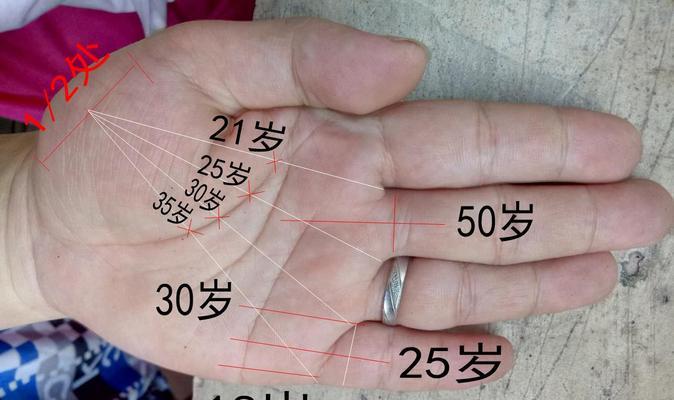 1/2处
21岁
25岁
30岁
35岁
50岁
30岁
25岁